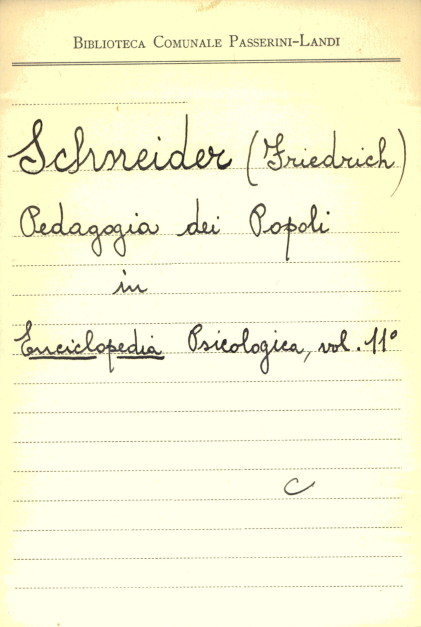 Biblioteca Comunale Passerini-Landi
Schneider (Friedrich)
Pedagogia dei Popoli
in
Enciclopedia Psicologica, vol. 11°
C